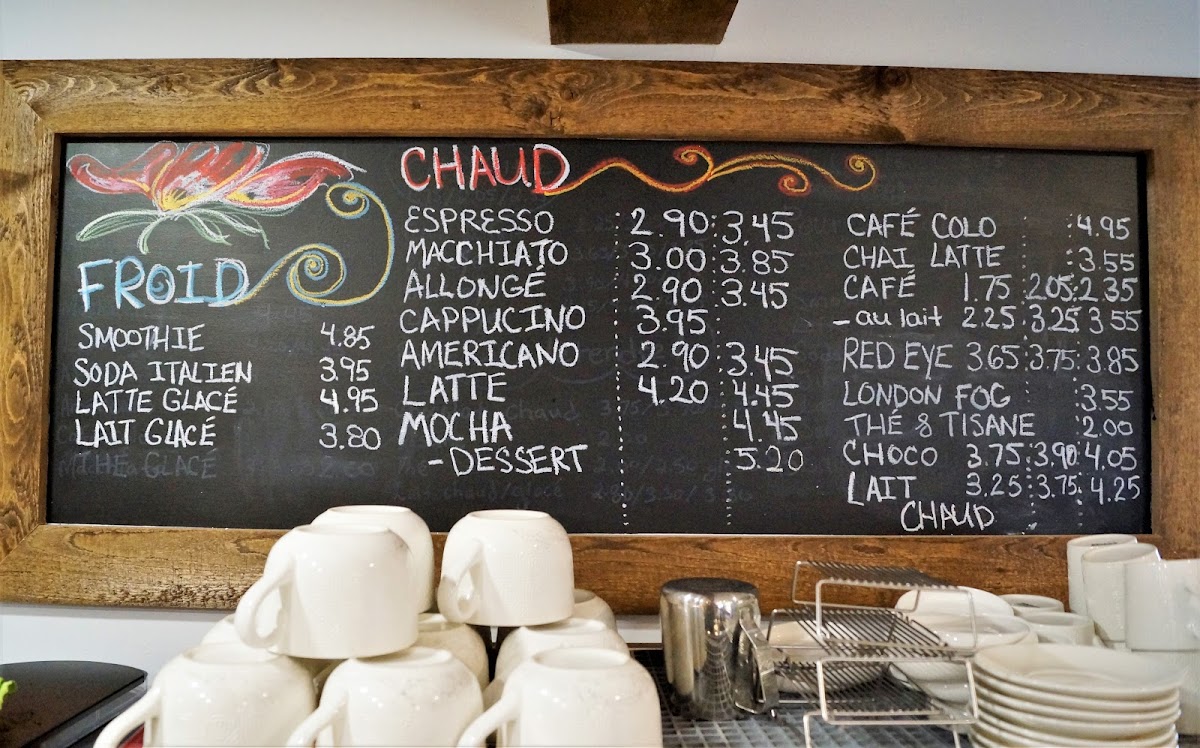 FROID
SMOOTHIE 4.85
SODA ITALIEN 3.95
LATTE GLACÉ 4.95
LAIT GLACÉ 3.80
THÉ GLACÉ
CHAUD
ESPRESSO 2.90 3.45
MACCHIATO 3.00 3.85
ALLONGÉ 2.90 3.45
CAPPUCINO 3.95
AMERICANO 2.90 3.45
LATTE 4.20 4.45
MOCHA 4.45
-DESSERT 5.20
CAFÉ COLO 4.95
CHAI LATTE 3.55
CAFÉ 1.75 2.05 2.35
-au lait 2.25 3.25 3.55
RED EYE 3.65 3.75 3.85
LONDON FOG 3.55
THÉ & TISANE 2.00
CHOCO 3.75 3.90 4.05
LAIT 3.25 3.75 4.25
CHAUD